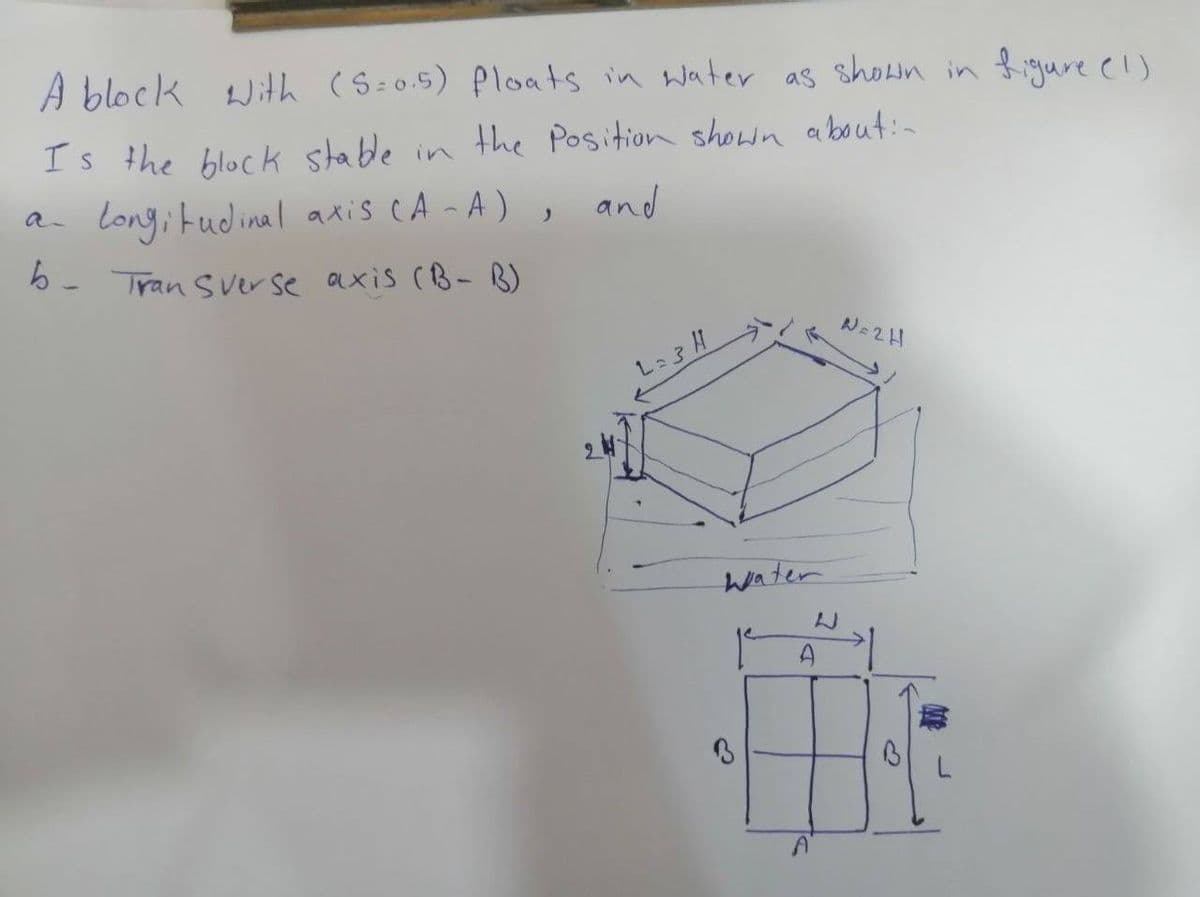 A block with (S=0.5) floats in water as shown in figure (1)
Is the block stable in the Position shown about:-
a- Longitudinal axis (A-A), and
b- Transverse axis (B-B)
L=3H
W=2H
2H
water
W
A
B
B
L
A